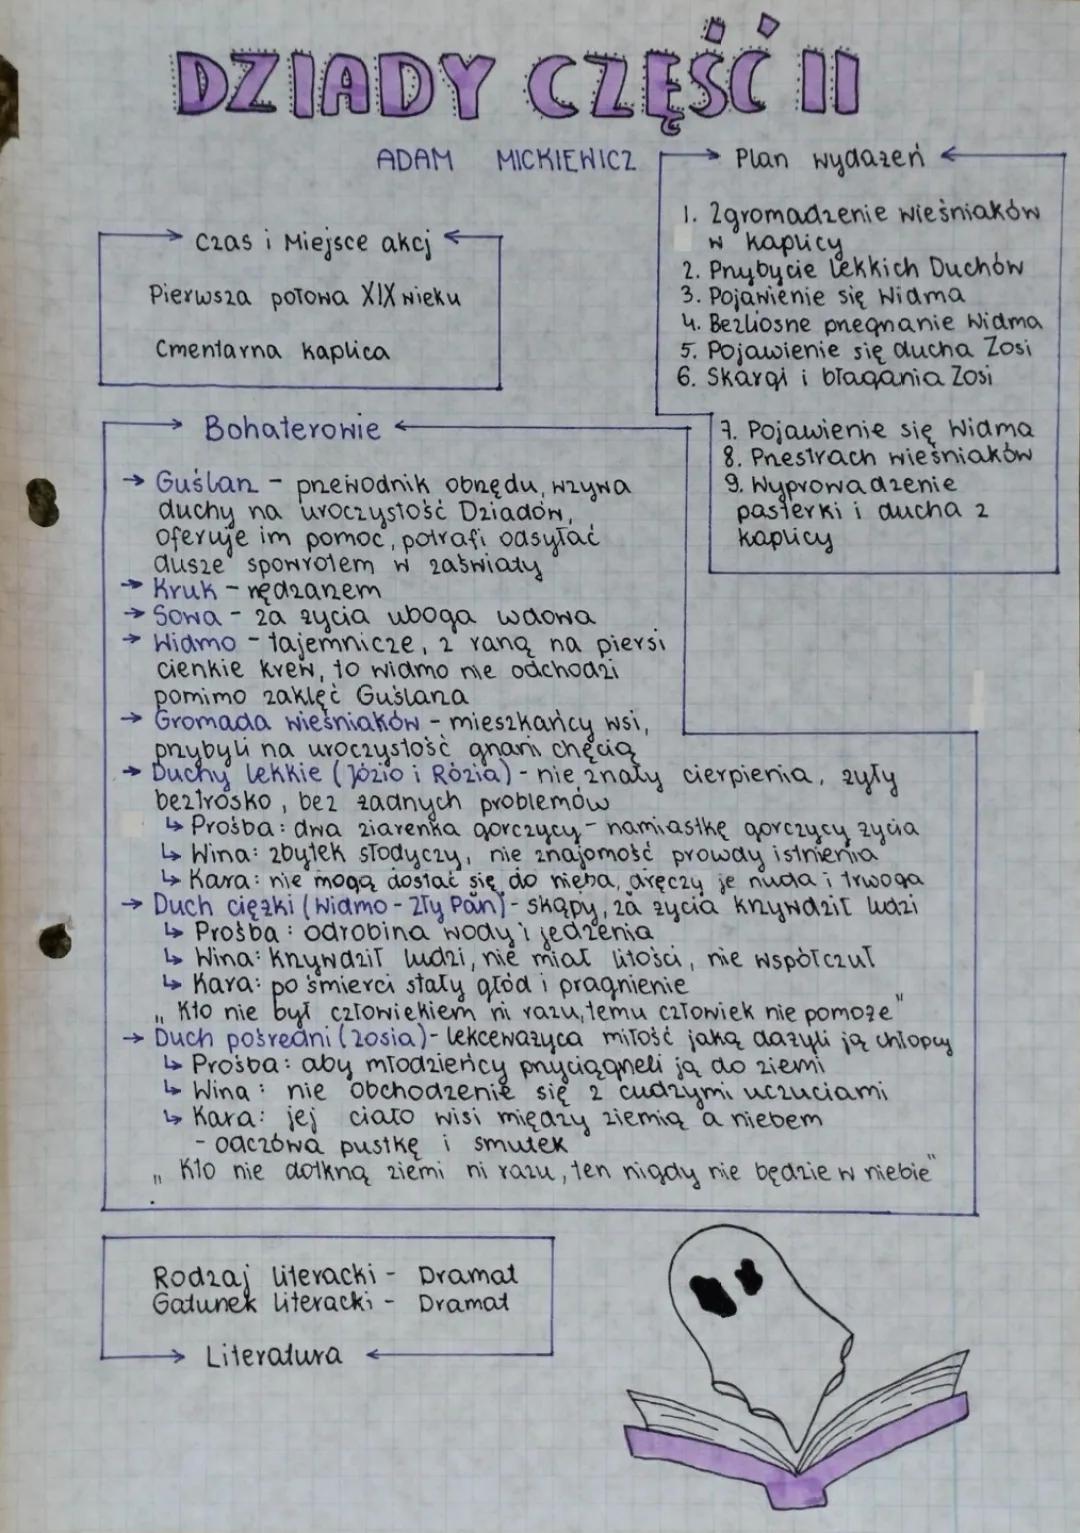 DZIADY CZĘŚĆ II
ADAM MICKIEWICZ
Czas i Miejsce akcj
Pierwsza połowa XIX wieku
Cmentarna kaplica
Plan wydażeń
1. Zgromadzenie wieśniaków
w kaplicy
2. Przybycie lekkich Duchów
3. Pojawienie się Widma
4. Bezliosne przegnanie Widma
5. Pojawienie się ducha Zosi
6. Skargi i błagania Zosi
7. Pojawienie się Widma
8. Przestrach wieśniaków
9. Wyprowadzenie
pasterki i ducha z
kaplicy
Bohaterowie
→ Guślarz - przewodnik obrzędu, wzywa
duchy na uroczystość Dziadów,
oferuje im pomoc, potrafi odsyłać
dusze spowrotem w zaświaty
→ Kruk - nędzarzem
→ Sowa - za życia uboga wdowa
→ Widmo - tajemnicze, z raną na piersi
cienkie krew, to widmo nie odchodzi
pomimo zaklęć Guślarza
→ Gromada wieśniaków - mieszkańcy wsi,
przybyli na uroczystość gnani chęcią
→ Duchy lekkie (Józio i Rózia) - nie znały cierpienia, żyły
beztrosko, bez żadnych problemów
↳ Prośba: dwa ziarenka gorczycy - namiastkę gorczycy życia
↳ Wina: zbytek słodyczy, nie znajomość prowdy istnienia
↳ Kara: nie mogą dostać się do nieba, dręczy je nuda i trwoga
→ Duch ciężki (Widmo - Zły Pan) - skąpy, za życia krzywdził ludzi
↳ Prośba: odrobina wody i jedzenia
↳ Wina: krzywdził ludzi, nie miał litości, nie współczuł
↳ Kara: po śmierci stały głód i pragnienie
„Kto nie był człowiekiem ni razu, temu człowiek nie pomoże"
→ Duch pośredni (Zosia) - lekceważyca miłość jaką dażyli ją chłopcy
↳ Prośba: aby młodzieńcy przyciągneli ją do ziemi
↳ Wina: nie obchodzenie się z cudzymi uczuciami
↳ Kara: jej ciało wisi między ziemią a niebem
- odczówa pustkę i smutek
„Kto nie dotkną ziemi ni razu, ten nigdy nie będzie w niebie"
Rodzaj literacki - Dramat
Gatunek literacki - Dramat
Literatura